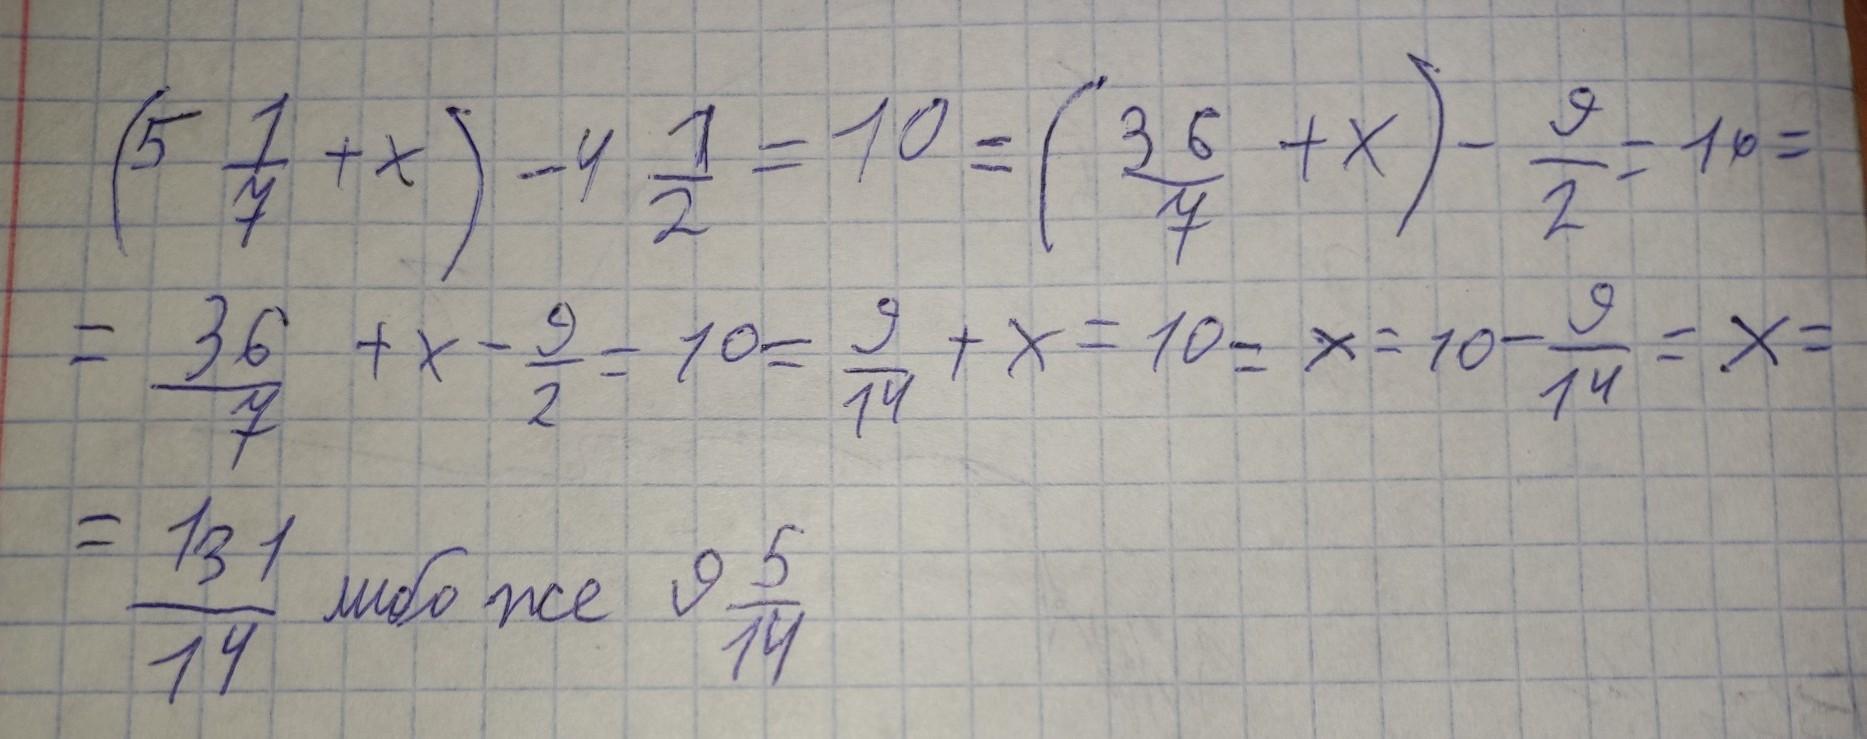 (5 1/7 + x) - 4 1/2 = 10 = (36/7 + x) - 9/2 = 10 =
= 36/7 + x - 9/2 = 10 = 9/14 + x = 10 = x = 10 - 9/14 = x =
= 131/14 либо же 9 5/14